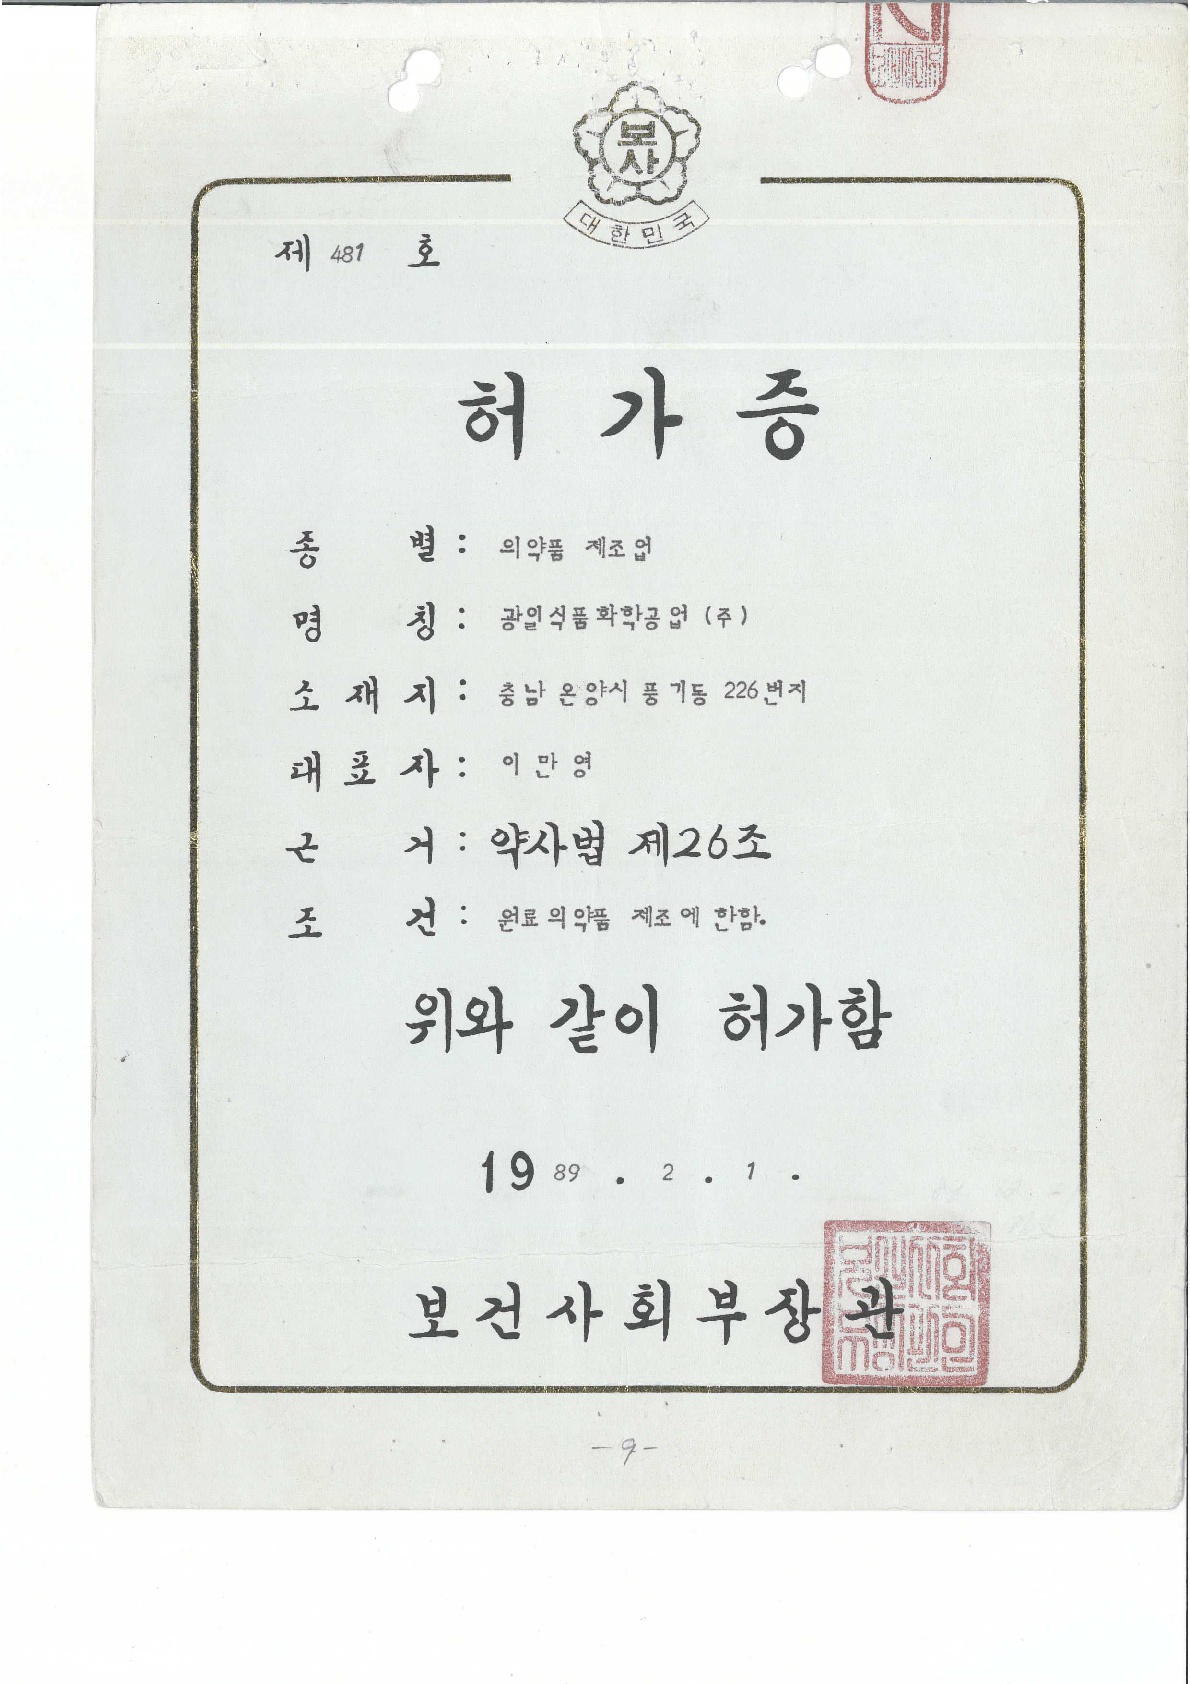 보사
대한민국
제 481 호
허 가 증
종 별 : 의약품 제조업
명 칭 : 광일식품화학공업 (주)
소 재 지 : 충남 온양시 풍기동 226번지
대 표 자 : 이 만 영
근 거 : 약사법 제26조
조 건 : 원료의약품 제조에 한함.
위와 같이 허가함
19 89 . 2 . 1 .
보 건 사 회 부 장 관
- 9 -